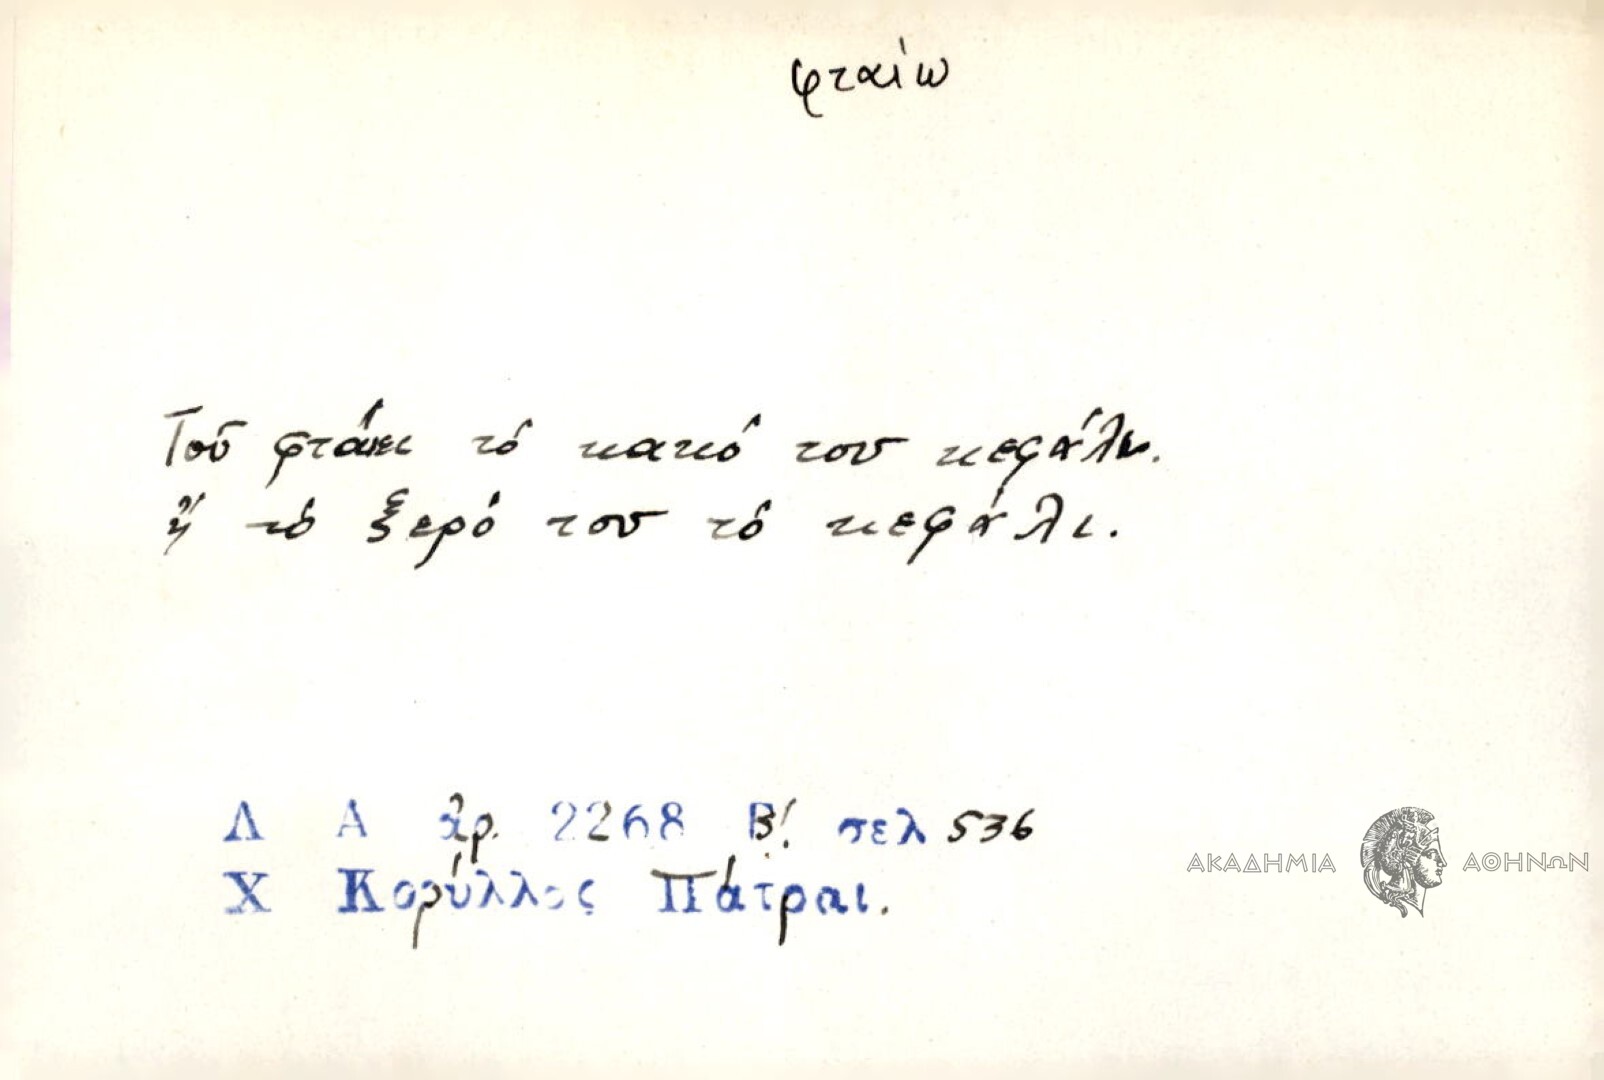 φταίω
Τοῦ φταίει τό κακό του κεφάλι.
ἤ τό ξερό του τό κεφάλι.
Λ Α ἀρ. 2268 Β! σελ 536
Χ Κορύλλος Πάτραι.
ΑΚΑΔΗΜΙΑ ΑΘΗΝΩΝ